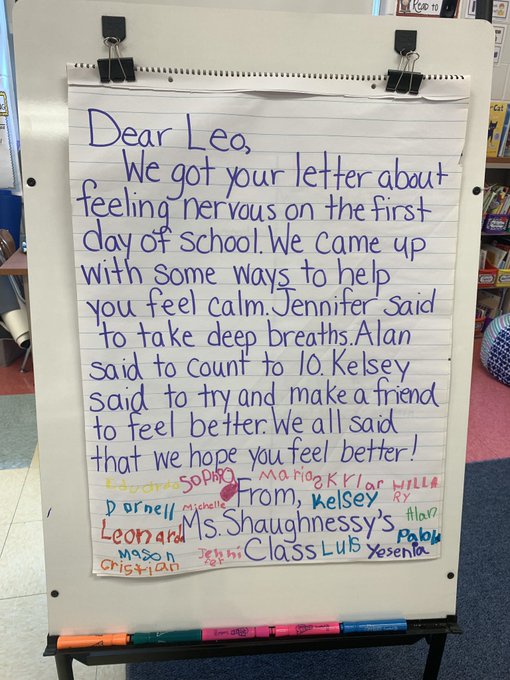 Read to
Dear Leo,
We got your letter about
feeling nervous on the first
day of school. We came up
with some ways to help
you feel calm. Jennifer said
to take deep breaths. Alan
said to count to 10. Kelsey
said to try and make a friend
to feel better. We all said
that we hope you feel better!
Eduardo Sophia Maria Skylar HILLA
RY
Darnell Michelle From, Kelsey Alan
Leonard Ms. Shaughnessy's Pablo
Mason Jenni
fer Class Luis Yesenia
Cristian
Cat